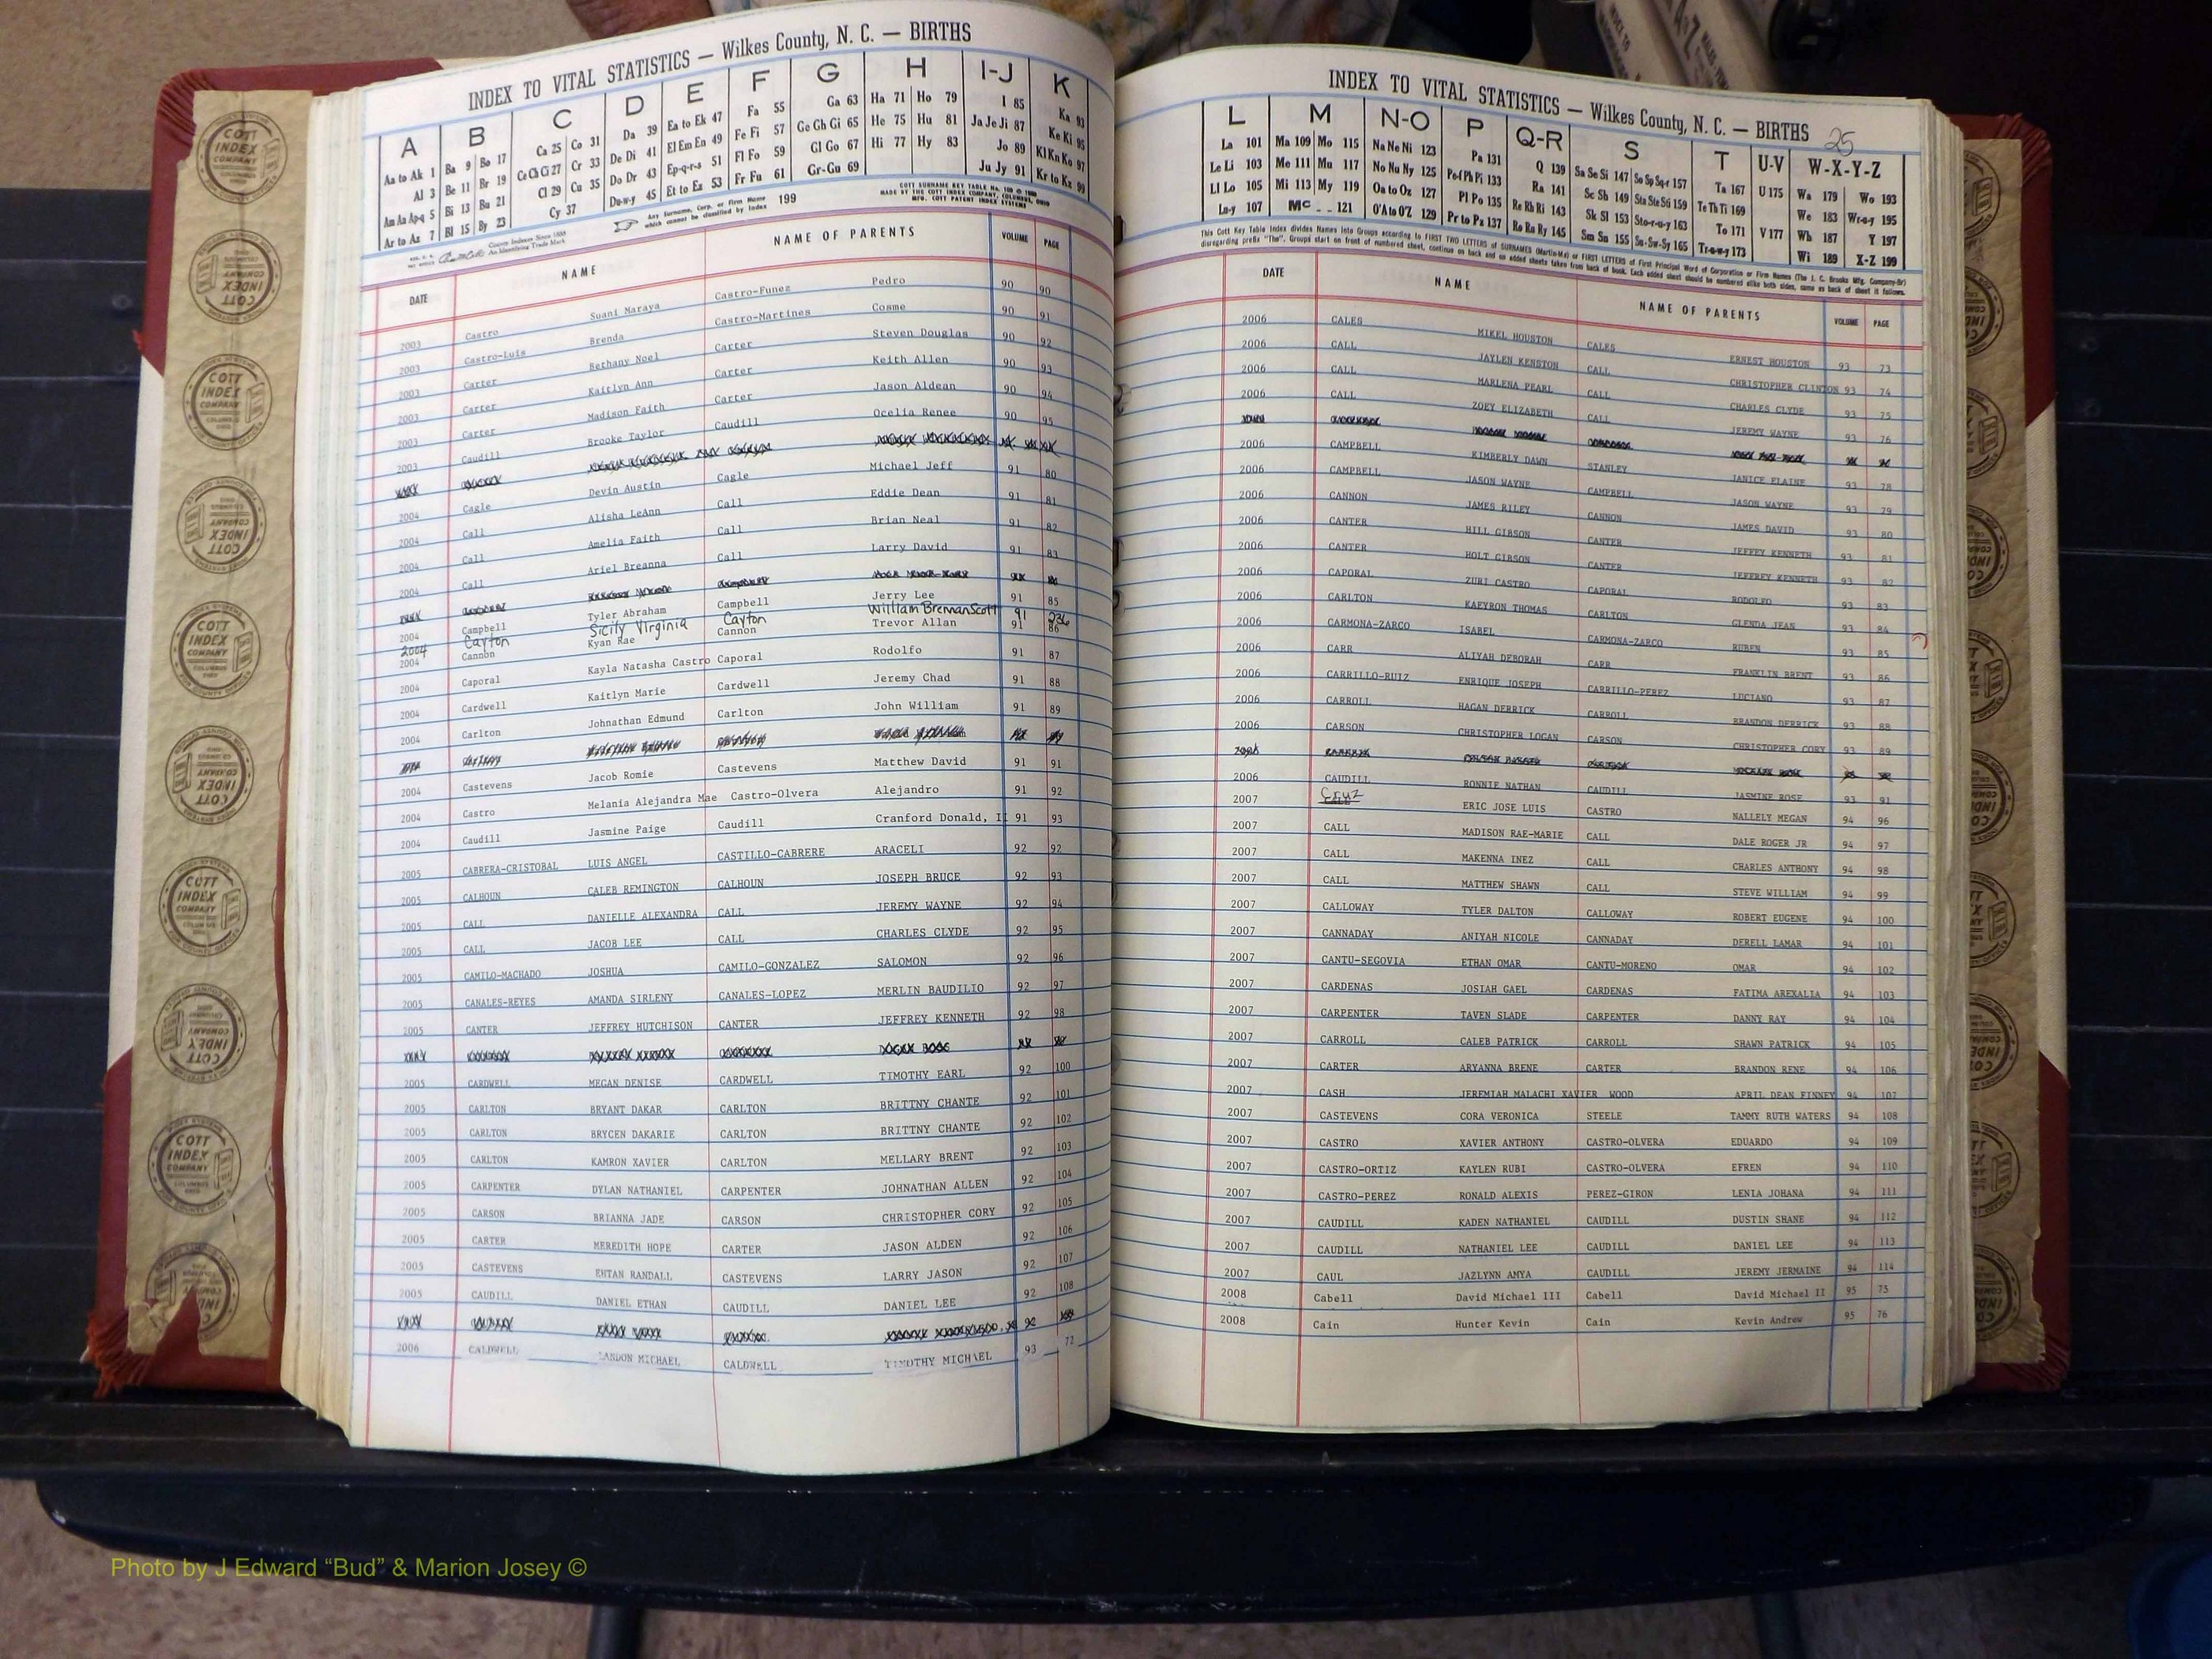 INDEX TO VITAL STATISTICS — Wilkes County, N. C. — BIRTHS
A B C D E F G H I-J K
Aa to Ak 1 Ba 9 Bo 17 Ca 25 Co 31 Da 39 Ea to Ek 47 Fa 55 Ga 63 Ha 71 Ho 79 I 85 Ka 93
Al 3 Be 11 Br 19 Ce Ch Ci 27 Cr 33 De Di 41 El Em En 49 Fe Fi 57 Ge Gh Gi 65 He 75 Hu 81 Ja Je Ji 87 Ke Ki 95
Am An Ap-q 5 Bi 13 Bu 21 Cl 29 Cu 35 Do Dr 43 Ep-q-r-s 51 Fl Fo 59 Gl Go 67 Hi 77 Hy 83 Jo 89 Kl Kn Ko 97
Ar to Az 7 Bl 15 By 23 Cy 37 Du-w-y 45 Et to Ez 53 Fr Fu 61 Gr-Gu 69 Ju Jy 91 Kr to Kz 99
Any Surname, Corp. or Firm Name which cannot be classified by Index 199
COTT SURNAME KEY TABLE No.
MADE BY THE COTT INDEX COMPANY, COLUMBUS, OHIO
MFG. COTT PATENT INDEX SYSTEMS
County Indexes Since 1888
An Identifying Trade Mark
DATE NAME NAME OF PARENTS VOLUME PAGE
2003 Castro Suani Maraya Castro-Funez Pedro 90 90
2003 Castro-Luis Brenda Castro-Martines Cosme 90 91
2003 Carter Bethany Noel Carter Steven Douglas 90 92
2003 Carter Kaitlyn Ann Carter Keith Allen 90 93
2003 Carter Madison Faith Carter Jason Aldean 90 94
2003 Caudill Brooke Taylor Caudill Ocelia Renee 90 95
2004 Cagle Devin Austin Cagle Michael Jeff 91 80
2004 Call Alisha LeAnn Call Eddie Dean 91 81
2004 Call Amelia Faith Call Brian Neal 91 82
2004 Call Ariel Breanna Call Larry David 91 83
2004 Campbell Tyler Abraham Campbell Jerry Lee 91 85
2004 Cayton Sicily Virginia Cayton William Brennan Scott 91 236
2004 Cannon Kyan Rae Cannon Trevor Allan 91 86
2004 Caporal Kayla Natasha Castro Caporal Rodolfo 91 87
2004 Cardwell Kaitlyn Marie Cardwell Jeremy Chad 91 88
2004 Carlton Johnathan Edmund Carlton John William 91 89
2004 Castevens Jacob Romie Castevens Matthew David 91 91
2004 Castro Melania Alejandra Mae Castro-Olvera Alejandro 91 92
2004 Caudill Jasmine Paige Caudill Cranford Donald, II 91 93
2005 CABRERA-CRISTOBAL LUIS ANGEL CASTILLO-CABRERE ARACELI 92 92
2005 CALHOUN CALEB REMINGTON CALHOUN JOSEPH BRUCE 92 93
2005 CALL DANIELLE ALEXANDRA CALL JEREMY WAYNE 92 94
2005 CALL JACOB LEE CALL CHARLES CLYDE 92 95
2005 CAMILO-MACHADO JOSHUA CAMILO-GONZALEZ SALOMON 92 96
2005 CANALES-REYES AMANDA SIRLENY CANALES-LOPEZ MERLIN BAUDILIO 92 97
2005 CANTER JEFFREY HUTCHISON CANTER JEFFREY KENNETH 92 98
2005 CARDWELL MEGAN DENISE CARDWELL TIMOTHY EARL 92 100
2005 CARLTON BRYANT DAKAR CARLTON BRITTNY CHANTE 92 101
2005 CARLTON BRYCEN DAKARIE CARLTON BRITTNY CHANTE 92 102
2005 CARLTON KAMRON XAVIER CARLTON MELLARY BRENT 92 103
2005 CARPENTER DYLAN NATHANIEL CARPENTER JOHNATHAN ALLEN 92 104
2005 CARSON BRIANNA JADE CARSON CHRISTOPHER CORY 92 105
2005 CARTER MEREDITH HOPE CARTER JASON ALDEN 92 106
2005 CASTEVENS EHTAN RANDALL CASTEVENS LARRY JASON 92 107
2005 CAUDILL DANIEL ETHAN CAUDILL DANIEL LEE 92 108
2006 CALDWELL LANDON MICHAEL CALDWELL TIMOTHY MICHAEL 93 72
INDEX TO VITAL STATISTICS — Wilkes County, N. C. — BIRTHS 25
L M N-O P Q-R S T U-V W-X-Y-Z
La 101 Ma 109 Mo 115 Na Ne Ni 123 Pa 131 Q 139 Sa Se Si 147 So Sp Sq-r 157 Ta 167 U 175 Wa 179 Wo 193
Le Li 103 Me 111 Mu 117 No Nu Ny 125 Pe-f Ph Pi 133 Ra 141 Sc Sh 149 Sta Ste Sti 159 Te Th Ti 169 We 183 Wr-u-y 195
Ll Lo 105 Mi 113 My 119 Oa to Oz 127 Pl Po 135 Re Rh Ri 143 Sk Sl 153 Sto-r-u-y 163 To 171 Wh 187 Y 197
Lu-y 107 Mc 121 O'A to O'Z 129 Pr to Pz 137 Ro Ru Ry 145 Sm Sn 155 Su-Sw-Sy 165 Tr-u-w-y 173 V 177 Wi 189 X-Z 199
This Cott Key Table Index divides Names into Groups according to FIRST TWO LETTERS of SURNAMES (Martin-Ma) or FIRST LETTERS of First Principal Word of Corporation or Firm Names (The J. C. Brooks Mfg. Company-Br)
disregarding prefix "The". Groups start on front of numbered sheet, continue on back and on added sheets taken from back of book. Each added sheet should be numbered alike both sides, same as back of sheet it follows.
DATE NAME NAME OF PARENTS VOLUME PAGE
2006 CALES MIKEL HOUSTON CALES ERNEST HOUSTON 93 73
2006 CALL JAYLEN KENSTON CALL CHRISTOPHER CLINTON 93 74
2006 CALL MARLENA PEARL CALL CHARLES CLYDE 93 75
2006 CALL ZOEY ELIZABETH CALL JEREMY WAYNE 93 76
2006 CAMPBELL KIMBERLY DAWN STANLEY JANICE ELAINE 93 78
2006 CAMPBELL JASON WAYNE CAMPBELL JASON WAYNE 93 79
2006 CANNON JAMES RILEY CANNON JAMES DAVID 93 80
2006 CANTER HILL GIBSON CANTER JEFFEY KENNETH 93 81
2006 CANTER HOLT GIBSON CANTER JEFFREY KENNETH 93 82
2006 CAPORAL ZURI CASTRO CAPORAL RODOLFO 93 83
2006 CARLTON KAEYRON THOMAS CARLTON GLENDA JEAN 93 84
2006 CARMONA-ZARCO ISABEL CARMONA-ZARCO RUBEN 93 85
2006 CARR ALIYAH DEBORAH CARR FRANKLIN BRENT 93 86
2006 CARRILLO-RUIZ ENRIQUE JOSEPH CARRILLO-PEREZ LUCIANO 93 87
2006 CARROLL HAGAN DERRICK CARROLL BRANDON DERRICK 93 88
2006 CARSON CHRISTOPHER LOGAN CARSON CHRISTOPHER CORY 93 89
2006 CAUDILL RONNIE NATHAN CAUDILL JASMINE ROSE 93 91
2007 Cruz ERIC JOSE LUIS CASTRO NALLELY MEGAN 94 96
2007 CALL MADISON RAE-MARIE CALL DALE ROGER JR 94 97
2007 CALL MAKENNA INEZ CALL CHARLES ANTHONY 94 98
2007 CALL MATTHEW SHAWN CALL STEVE WILLIAM 94 99
2007 CALLOWAY TYLER DALTON CALLOWAY ROBERT EUGENE 94 100
2007 CANNADAY ANIYAH NICOLE CANNADAY DERELL LAMAR 94 101
2007 CANTU-SEGOVIA ETHAN OMAR CANTU-MORENO OMAR 94 102
2007 CARDENAS JOSIAH GAEL CARDENAS FATIMA AREXALIA 94 103
2007 CARPENTER TAVEN SLADE CARPENTER DANNY RAY 94 104
2007 CARROLL CALEB PATRICK CARROLL SHAWN PATRICK 94 105
2007 CARTER ARYANNA BRENE CARTER BRANDON RENE 94 106
2007 CASH JEREMIAH MALACHI XAVIER WOOD APRIL DEAN FINNEY 94 107
2007 CASTEVENS CORA VERONICA STEELE TAMMY RUTH WATERS 94 108
2007 CASTRO XAVIER ANTHONY CASTRO-OLVERA EDUARDO 94 109
2007 CASTRO-ORTIZ KAYLEN RUBI CASTRO-OLVERA EFREN 94 110
2007 CASTRO-PEREZ RONALD ALEXIS PEREZ-GIRON LENIA JOHANA 94 111
2007 CAUDILL KADEN NATHANIEL CAUDILL DUSTIN SHANE 94 112
2007 CAUDILL NATHANIEL LEE CAUDILL DANIEL LEE 94 113
2007 CAUL JAZLYNN AMYA CAUDILL JEREMY JERMAINE 94 114
2008 Cabell David Michael III Cabell David Michael II 95 75
2008 Cain Hunter Kevin Cain Kevin Andrew 95 76
COTT INDEX COMPANY
Photo by J Edward “Bud” & Marion Josey ©